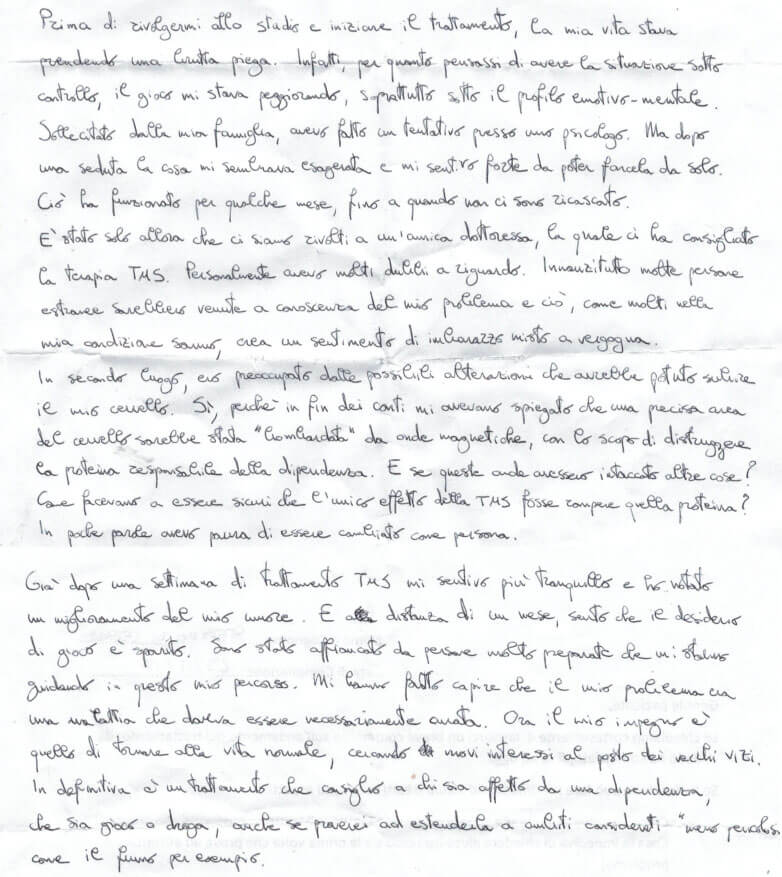 Prima di rivolgermi allo studio e iniziare il trattamento, la mia vita stava
prendendo una brutta piega. Infatti, per quanto pensassi di avere la situazione sotto
controllo, il gioco mi stava peggiorando, soprattutto sotto il profilo emotivo-mentale.
Sollecitato dalla mia famiglia, avevo fatto un tentativo presso uno psicologo. Ma dopo
una seduta la cosa mi sembrava esagerata e mi sentivo forte da poter farcela da solo.
Ciò ha funzionato per qualche mese, fino a quando non ci sono ricascato.
E' stato solo allora che ci siamo rivolti a un'amica dottoressa, la quale ci ha consigliato
la terapia TMS. Personalmente avevo molti dubbi a riguardo. Innanzitutto molte persone
estranee sarebbero venute a conoscenza del mio problema e ciò, come molti nella
mia condizione sanno, crea un sentimento di imbarazzo misto a vergogna.
In secondo luogo, ero preoccupato dalle possibili alterazioni che avrebbe potuto subire
il mio cervello. Sì, perchè in fin dei conti mi avevano spiegato che una precisa area
del cervello sarebbe stata "bombardata" da onde magnetiche, con lo scopo di distruggere
la proteina responsabile della dipendenza. E se queste onde avessero intaccato altre cose?
Come facevano a essere sicuri che l'unico effetto della TMS fosse rompere quella proteina?
In poche parole avevo paura di essere cambiato come persona.
Già dopo una settimana di trattamento TMS mi sentivo più tranquillo e ho notato
un miglioramento del mio umore. E a distanza di un mese, sento che il desiderio
di gioco è sparito. Sono stato affiancato da persone molto preparate che mi stanno
guidando in questo mio percorso. Mi hanno fatto capire che il mio problema era
una malattia che doveva essere necessariamente curata. Ora il mio impegno è
quello di tornare alla vita normale, cercando nuovi interessi al posto dei vecchi vizi.
In definitiva è un trattamento che consiglio a chi sia affetto da una dipendenza,
che sia gioco o droga, anche se proverei ad estenderla a ambiti considerati "meno pericolosi
come il fumo per esempio.